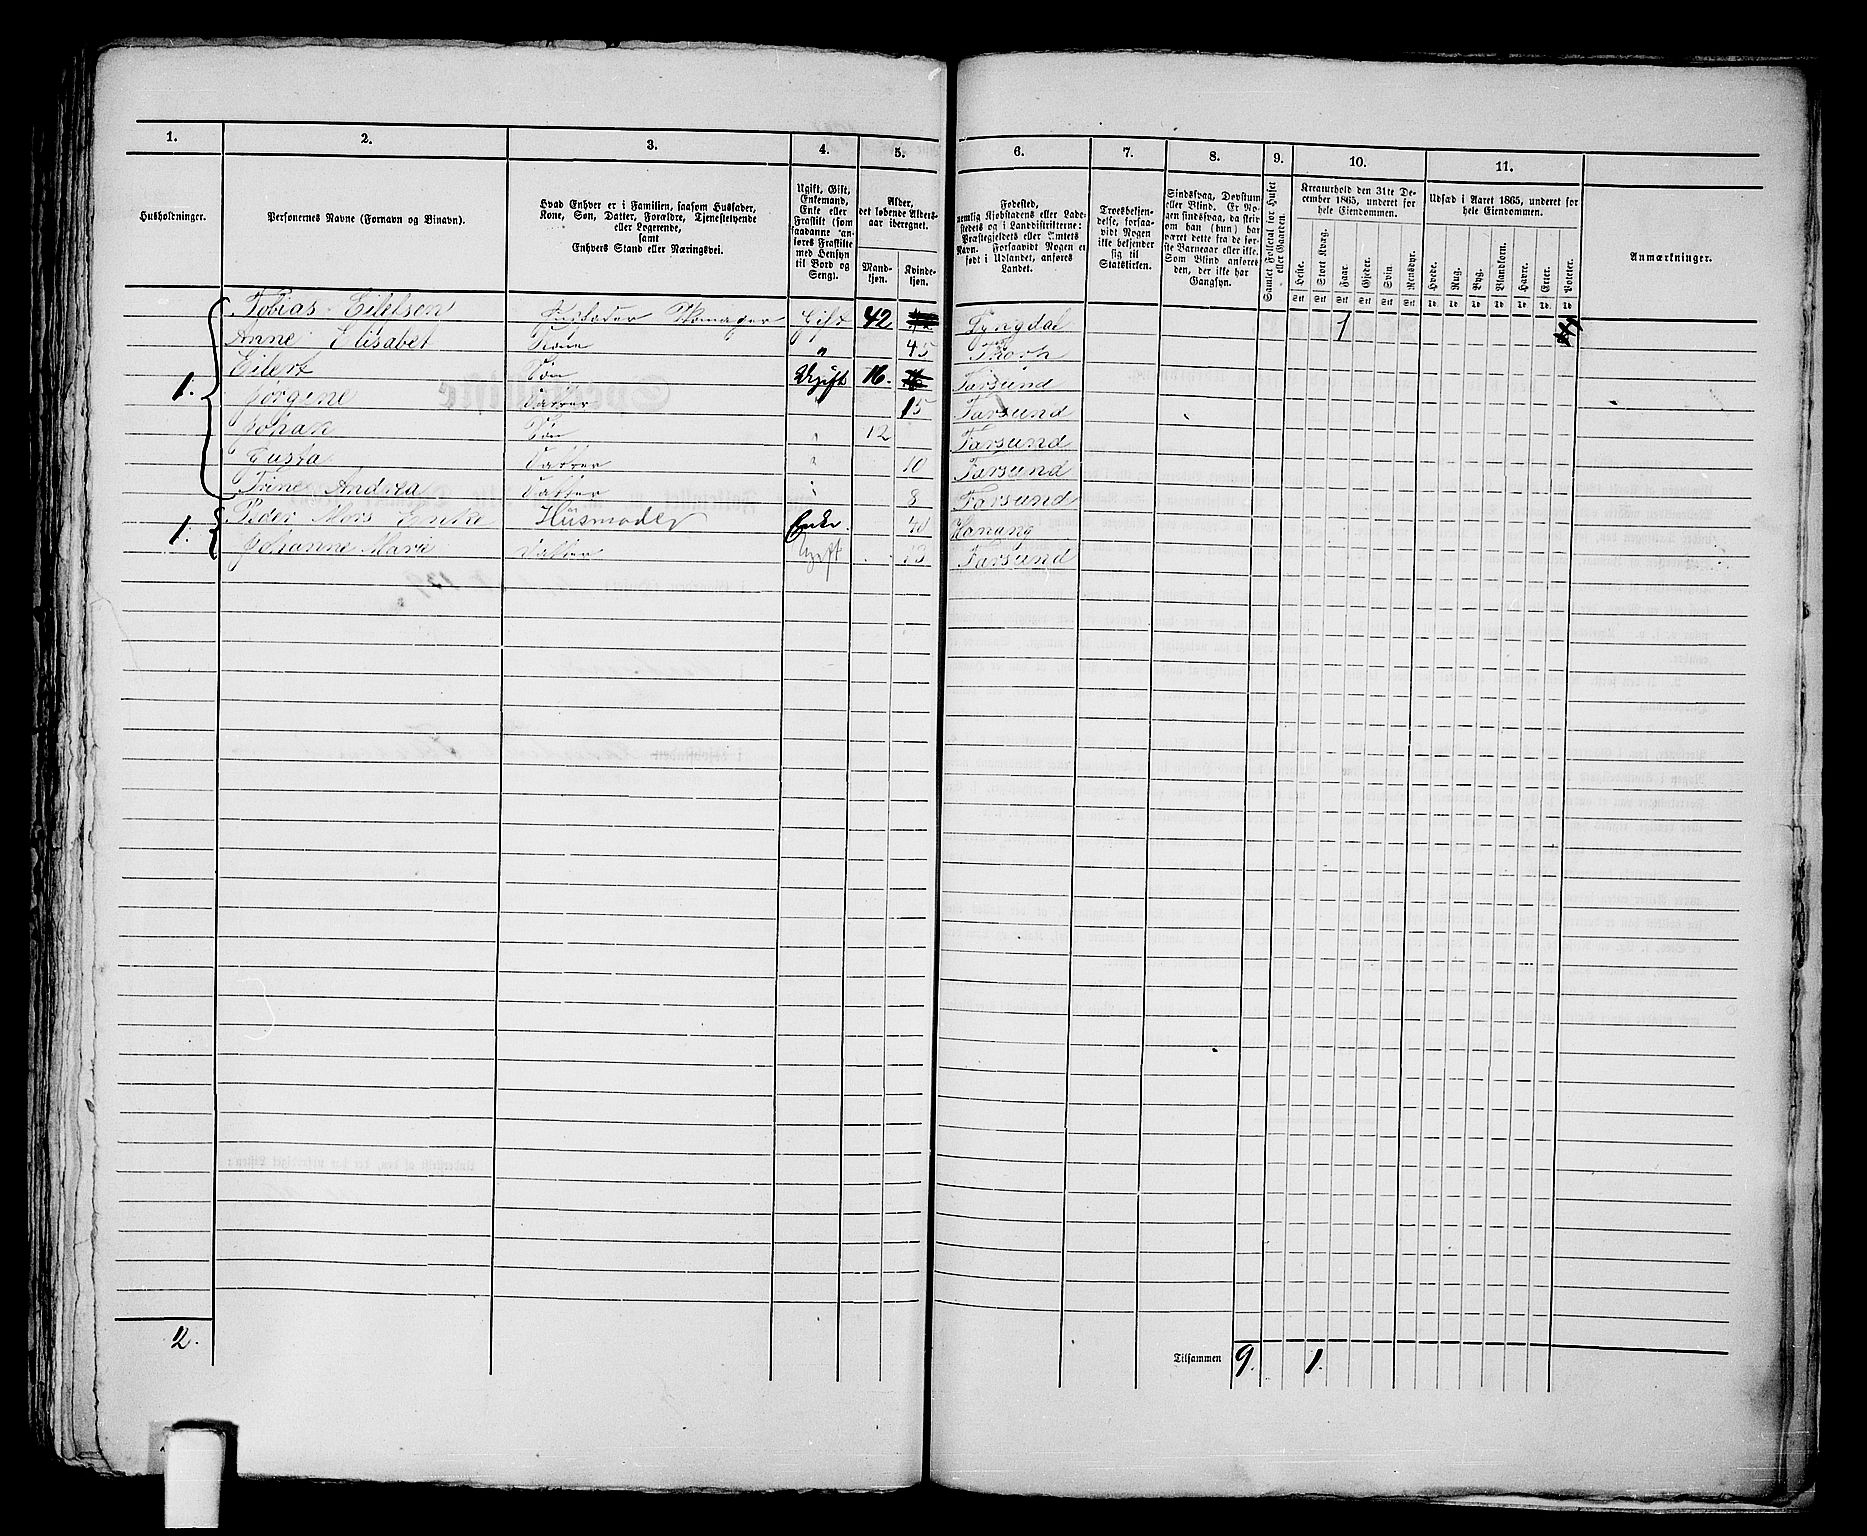 1. 2. 3. 4. 5. 6. 7. 8. 9. 10. 11.
Husholdninger.
Personernes Navne (Fornavn og Binavn).
Hvad Enhver er i Familien, saasom Husfader,
Kone, Søn, Datter, Forældre, Tjenestetyende
eller Logerende,
samt
Enhvers Stand eller Næringsvei.
Ugift, Gift,
Enkemand,
Enke eller
Fraskilt (som
saadanne an-
føres Fraskilte
med Hensyn
til Bord og
Seng).
Alder,
det løbende Alders-
aar iberegnet.
Mand-
kjøn.
Kvinde-
kjøn.
Fødested,
nemlig Kjøbstadens eller Lade-
stedets og i Landdistrikterne:
Præstegjeldets eller Amtets
Navn. Forsaavidt Nogen er
født i Udlandet, anføres
Landet.
Troesbekjen-
delse, forsaa-
vidt Nogen
ikke bekjender
sig til
Statskirken.
Sindssvag, Døvstum
eller Blind. Er No-
gen sindssvag, da skriv
om han (hun) har
været dette fra de før-
ste Barneaar eller ikke.
Som Blind anføres
den, der ikke har
Gangsyn.
Samlet Folketal for Huset
eller Gaarden.
Kreaturhold den 31te De-
cember 1865, underet for
hele Eiendommen.
Heste. Stort Kvæg. Faar. Gjeder. Svin. Rensdyr.
Udsæd i Aaret 1865, underet for
hele Eiendommen.
Hvede. Rug. Byg. Blandkorn. Havre. Erter. Poteter.
Anmærkninger.
Tobias Eilelsen Husfader Gift 42 Lyngdal 1
Anne Elisabet Kone " 45
Eilert Søn Ugift 16. Farsund
1. Jørgine Datter 15 Farsund
Johan Søn 12 Farsund
Gusta Datter 10 Farsund
Trine Andrea Datter 8 Farsund
Peder Mors Enke Husmoder Enke. 40 Hanang
1. Johanne Marie Datter Ugift 13 Farsund
2.
Tilsammen 9. 1.